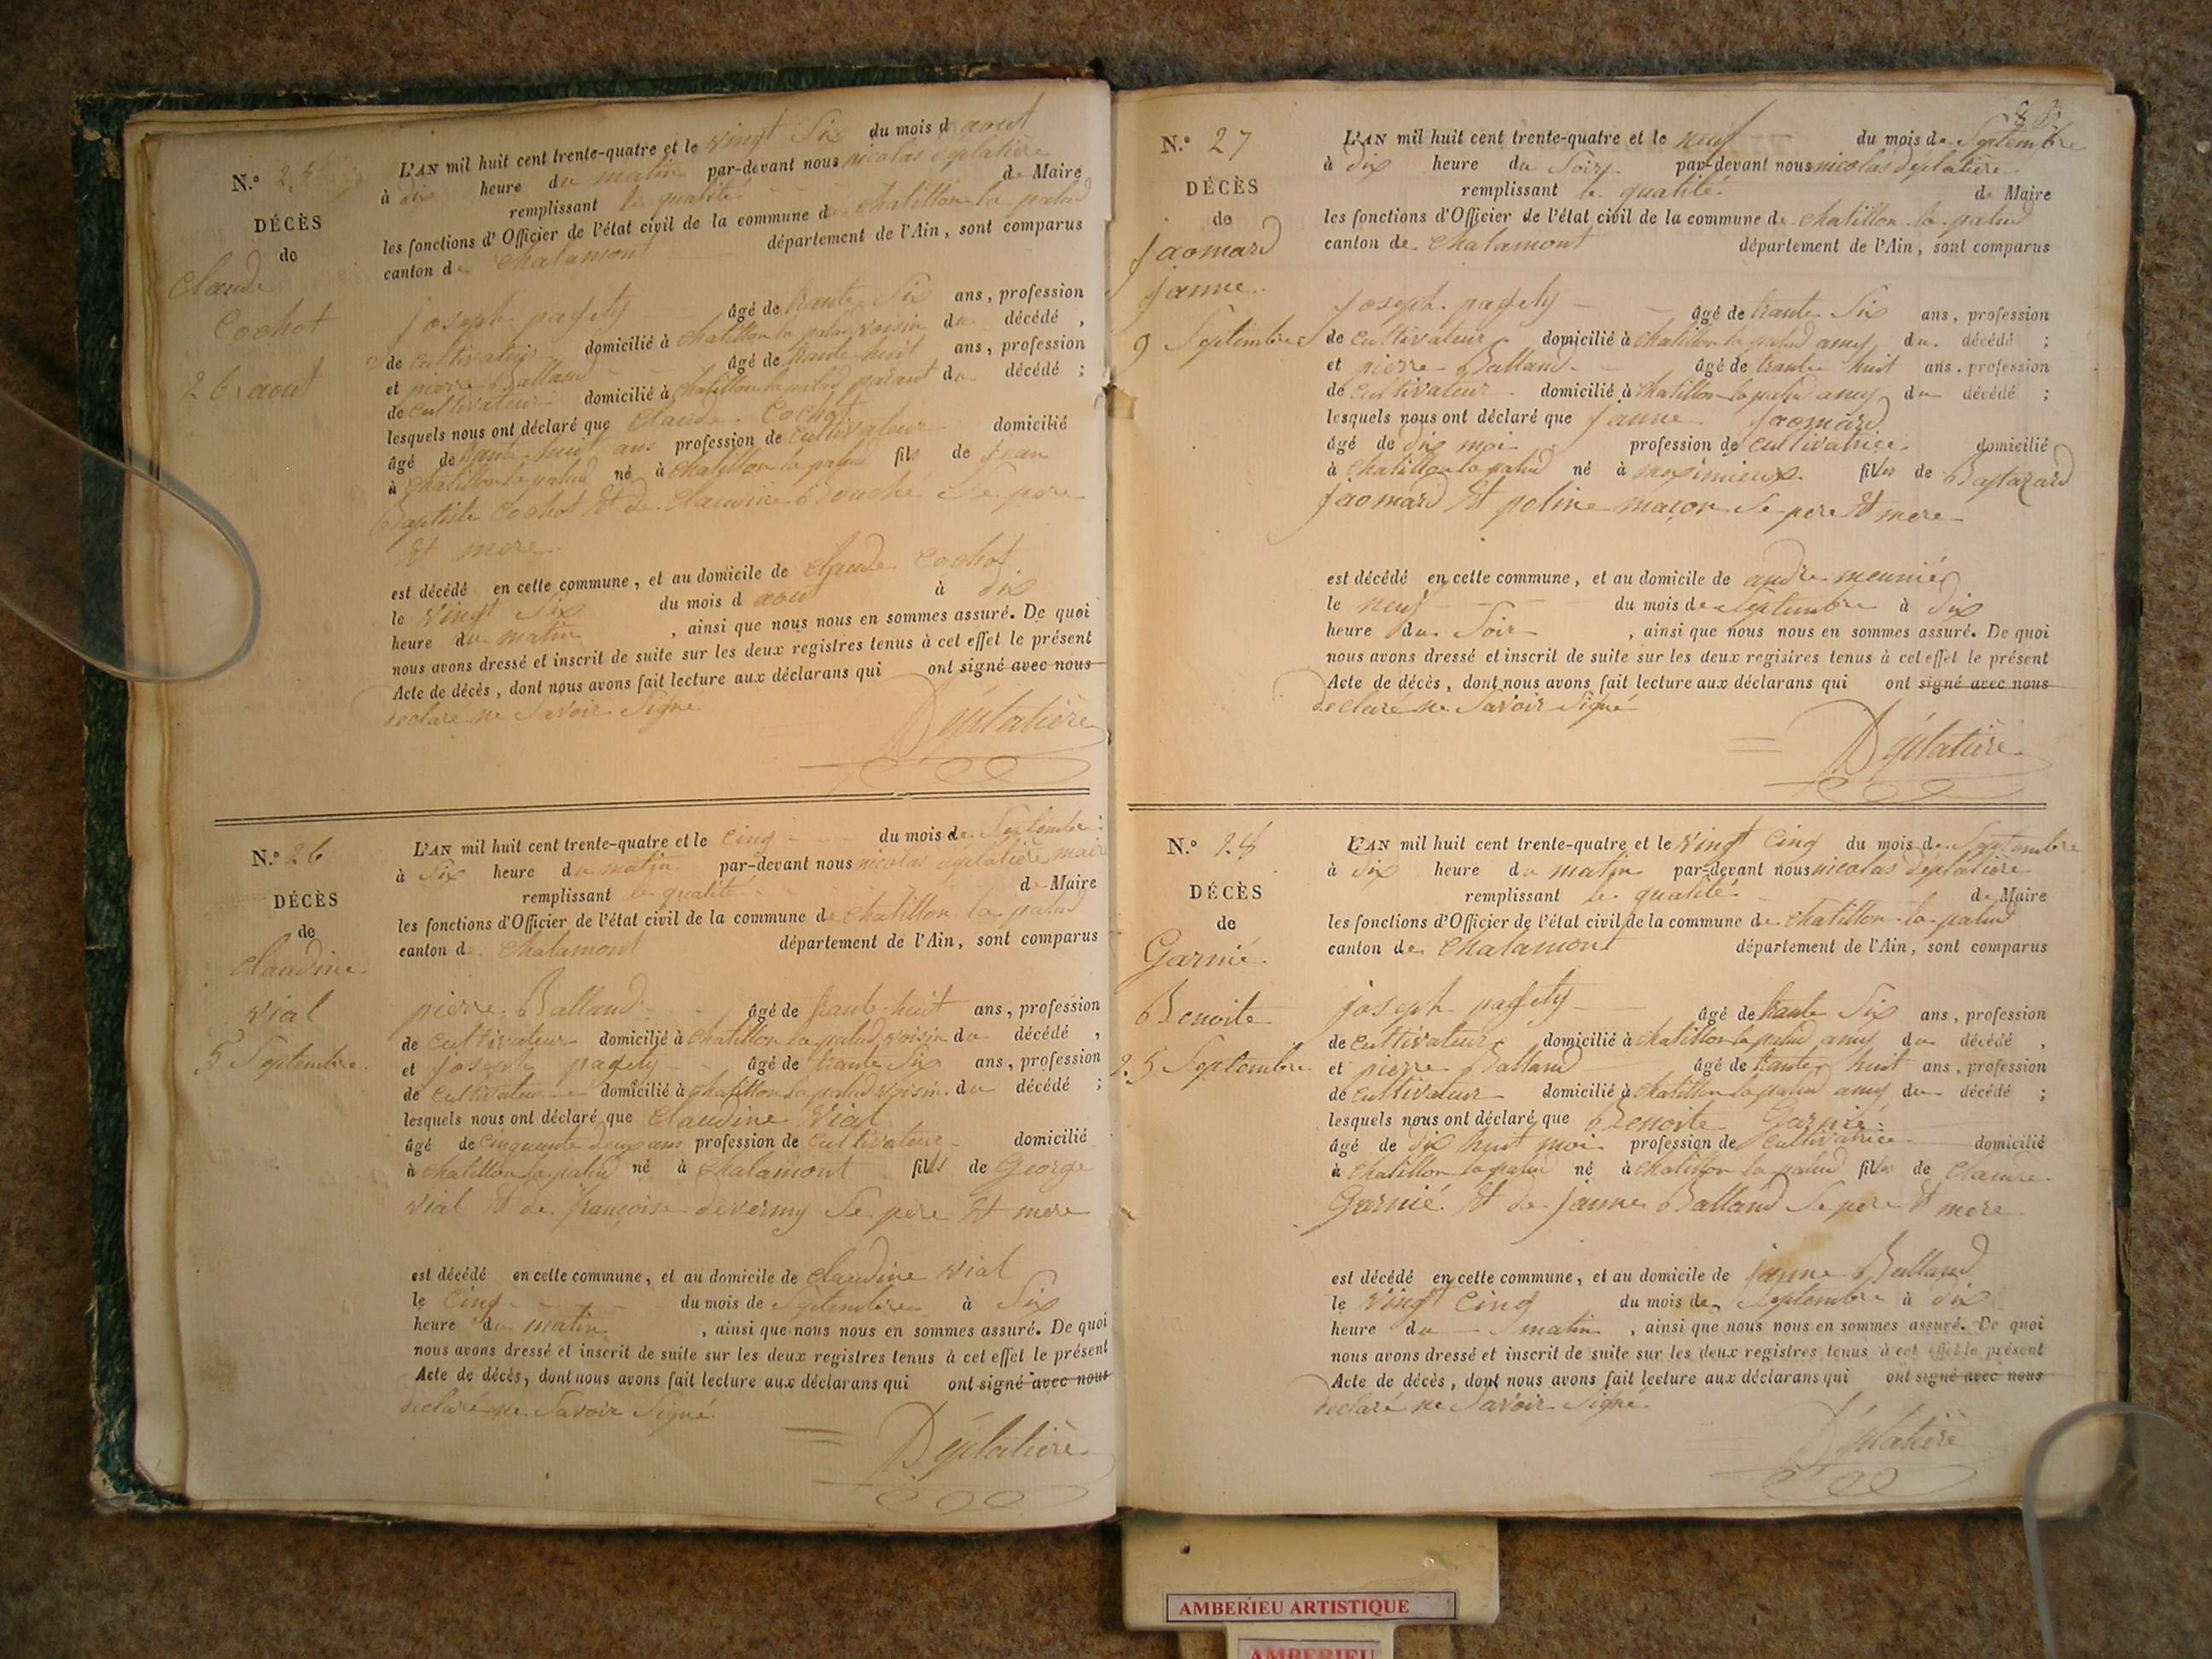 N.º 25
DÉCÈS
de
Claude
Cochot
26 aout
L'AN mil huit cent trente-quatre et le vingt Six du mois d aout
à dix heure du matin par-devant nous nicolas déplatière
remplissant le qualité de Maire
les fonctions d'Officier de l'état civil de la commune de chatillon la palud
canton de Chalamont département de l'Ain, sont comparus
joseph pagety âgé de trante Six ans, profession
de cultivateur domicilié à chatillon la palud voisin du décédé,
et pierre Balland âgé de trante huit ans, profession
de cultivateur domicilié à chatillon la palud parant du décédé;
lesquels nous ont déclaré que Claude Cochot
âgé de trante huit ans profession de cultivateur domicilié
à chatillon la palud né à chatillon la palud fils de jean
Baptiste Cochot Et de Claudine Bouché Se pere
Et mere
est décédé en cette commune, et au domicile de Claude Cochot
le vingt Six du mois d aout à dix
heure du matin, ainsi que nous nous en sommes assuré. De quoi
nous avons dressé et inscrit de suite sur les deux registres tenus à cet effet le présent
Acte de décès, dont nous avons fait lecture aux déclarans qui ont signé avec nous
declaré ne Savoir Signé
Déplatière
N.º 26
DÉCÈS
de
Claudine
vial
5 Septembre
L'AN mil huit cent trente-quatre et le Cinq du mois de Septembre
à Six heure du matin par-devant nous nicolas déplatière maire
remplissant le qualité de Maire
les fonctions d'Officier de l'état civil de la commune de chatillon la palud
canton de Chalamont département de l'Ain, sont comparus
pierre Balland âgé de trante huit ans, profession
de cultivateur domicilié à chatillon la palud voisin du décédé,
et joseph pagety âgé de trante Six ans, profession
de cultivateur domicilié à chatillon la palud voisin du décédé;
lesquels nous ont déclaré que Claudine Vial
âgé de cinquante deux ans profession de cultivateur domicilié
à chatillon la palud né à Chalamont fills de George
vial Et de françoise devermy Se pere Et mere
est décédé en cette commune, et au domicile de Claudine vial
le Cinq du mois de Septembre à Six
heure du matin, ainsi que nous nous en sommes assuré. De quoi
nous avons dressé et inscrit de suite sur les deux registres tenus à cet effet le présent
Acte de décès, dont nous avons fait lecture aux déclarans qui ont signé avec nous
declaré ne Savoir Signé
Déplatière
N.º 27
DÉCÈS
de
jaomard
janne
9 Septembre
L'AN mil huit cent trente-quatre et le neuf du mois de Septembre
à dix heure du Soir par-devant nous nicolas déplatière
remplissant le qualité de Maire
les fonctions d'Officier de l'état civil de la commune de chatillon la palud
canton de Chalamont département de l'Ain, sont comparus
joseph pagety âgé de trante Six ans, profession
de cultivateur domicilié à chatillon la palud amy du décédé;
et pierre Balland âgé de trante huit ans, profession
de cultivateur domicilié à chatillon la palud amy du décédé;
lesquels nous ont déclaré que janne jaomard
âgé de dix moi profession de cultivatrice domicilié
à chatillon la palud né à meximieux filles de Baltazard
jaomard Et poline maçon Se pere Et mere
est décédé en cette commune, et au domicile de andre meunié
le neuf du mois de Septembre à dix
heure du Soir, ainsi que nous nous en sommes assuré. De quoi
nous avons dressé et inscrit de suite sur les deux registres tenus à cet effet le présent
Acte de décès, dont nous avons fait lecture aux déclarans qui ont signé avec nous
declaré ne Savoir Signé
Déplatière
N.º 28
DÉCÈS
de
Garnié
Benoite
25 Septembre
L'AN mil huit cent trente-quatre et le vingt Cinq du mois de Septembre
à dix heure du matin par-devant nous nicolas déplatière
remplissant le qualité de Maire
les fonctions d'Officier de l'état civil de la commune de chatillon la palud
canton de Chalamont département de l'Ain, sont comparus
joseph pagety âgé de trante Six ans, profession
de cultivateur domicilié à chatillon la palud amy du décédé,
et pierre Balland âgé de trante huit ans, profession
de cultivateur domicilié à chatillon la palud amy du décédé;
lesquels nous ont déclaré que Benoite Garnié
âgé de dix huit moi profession de cultivatrice domicilié
à chatillon la palud né à chatillon la palud filles de Claude
Garnié Et de janne Balland Se pere Et mere
est décédé en cette commune, et au domicile de janne Balland
le vingt Cinq du mois de Septembre à dix
heure du matin, ainsi que nous nous en sommes assuré. De quoi
nous avons dressé et inscrit de suite sur les deux registres tenus à cet effet le présent
Acte de décès, dont nous avons fait lecture aux déclarans qui ont signé avec nous
declaré ne Savoir Signé
Déplatière
AMBERIEU ARTISTIQUE
AMBERIEU